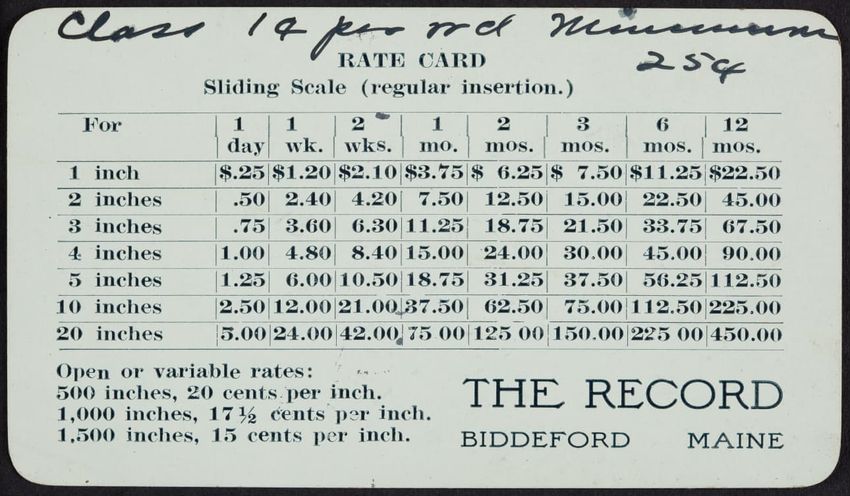 Class 1¢ per wd Minimum
25¢
RATE CARD
Sliding Scale (regular insertion.)
For 1 1 2 1 2 3 6 12
day wk. wks. mo. mos. mos. mos. mos.
1 inch $.25 $1.20 $2.10 $3.75 $ 6.25 $ 7.50 $11.25 $22.50
2 inches .50 2.40 4.20 7.50 12.50 15.00 22.50 45.00
3 inches .75 3.60 6.30 11.25 18.75 21.50 33.75 67.50
4 inches 1.00 4.80 8.40 15.00 24.00 30.00 45.00 90.00
5 inches 1.25 6.00 10.50 18.75 31.25 37.50 56.25 112.50
10 inches 2.50 12.00 21.00 37.50 62.50 75.00 112.50 225.00
20 inches 5.00 24.00 42.00 75 00 125 00 150.00 225 00 450.00
Open or variable rates:
500 inches, 20 cents per inch.
1,000 inches, 17 ½ cents per inch.
1,500 inches, 15 cents per inch.
THE RECORD
BIDDEFORD MAINE